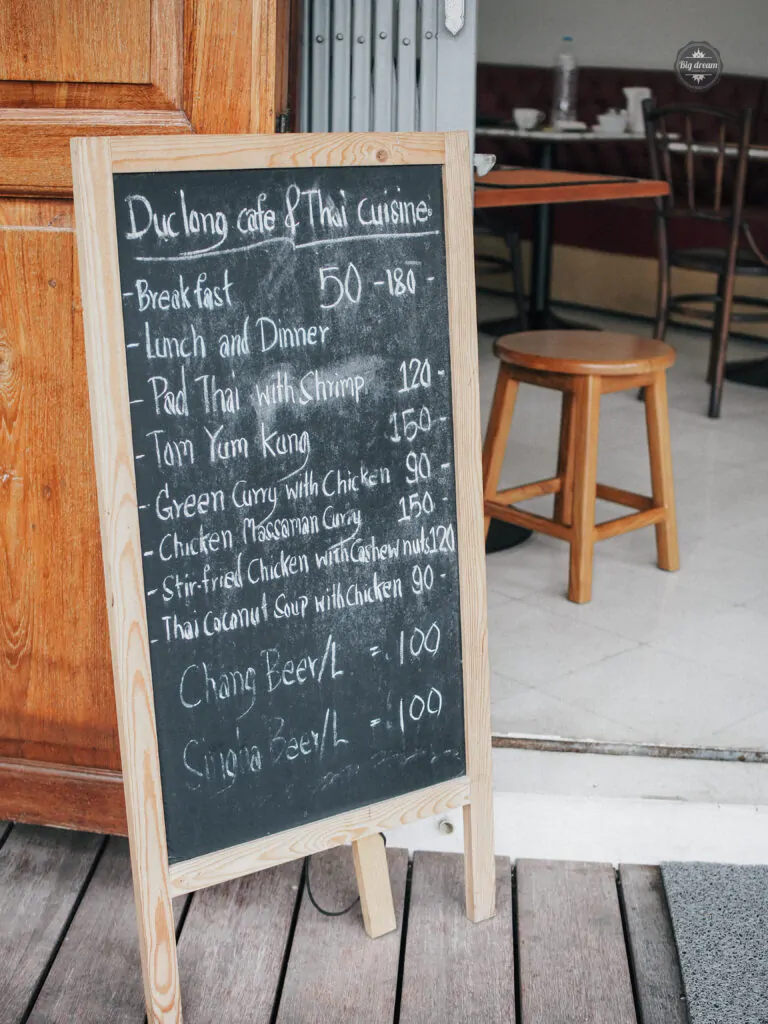 Big dream
Duc long cafe & Thai cuisine.
- Breakfast 50 - 180 -
- Lunch and Dinner
- Pad Thai with Shrimp 120 -
- Tom Yum Kung 150 -
- Green Curry with Chicken 90 -
- Chicken Massaman Curry 150 -
- Stir-fried Chicken with Cashew nuts 120
- Thai Coconut Soup with Chicken 90 -
Chang Beer/L = 100
Singha Beer/L = 100